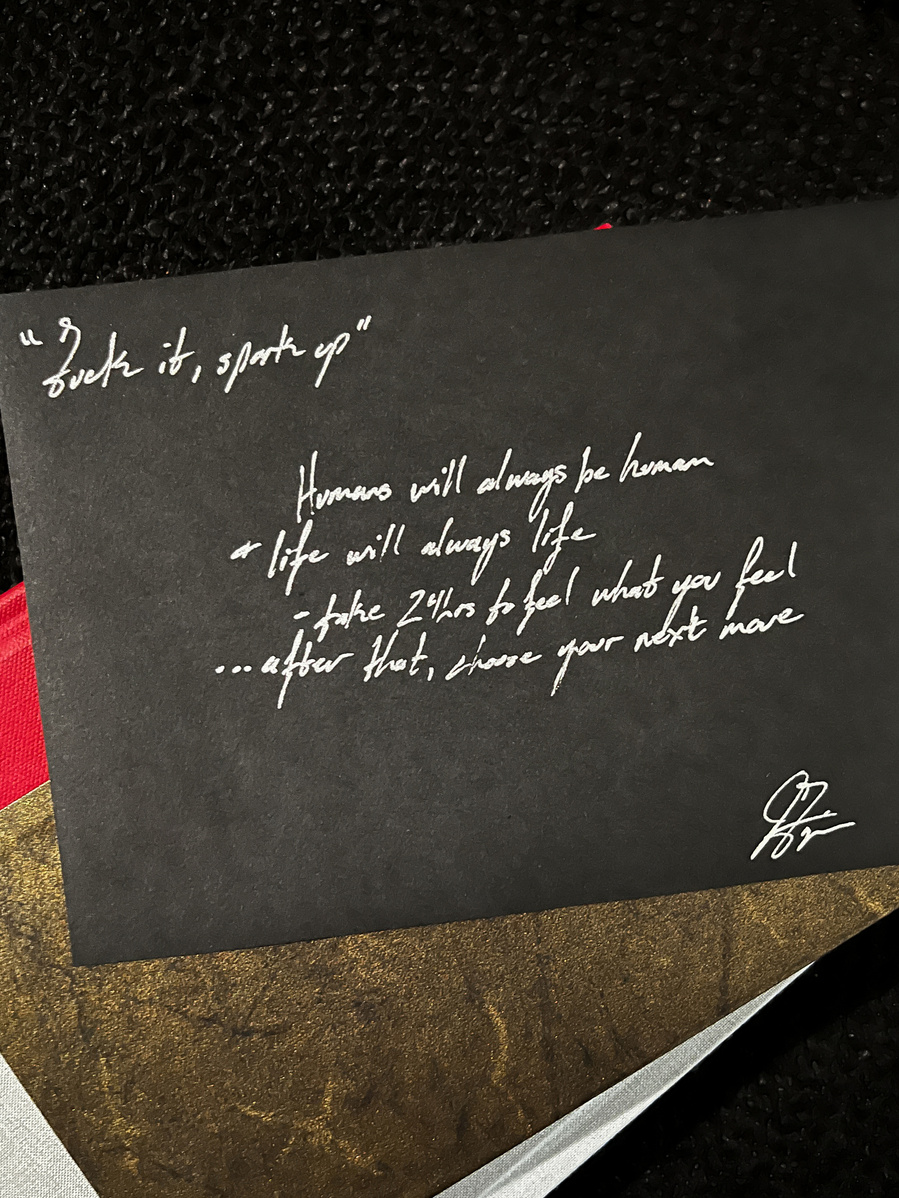 "Fuck it, spark up"
Humans will always be human
+ life will always life
- take 24hrs to feel what you feel
...after that, choose your next move